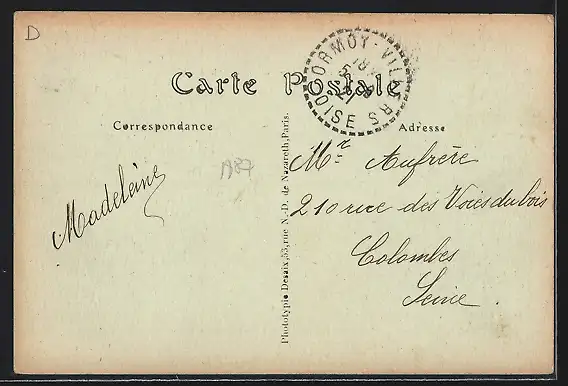 D
ORMOY-VILLERS
OISE
Carte Postale
Correspondance
Adresse
Madeleine
Mr Aufrère
210 rue des Voies du bois
Colombes
Seine.
Phototypie Desaix, 53, rue N.-D. de Nazareth, Paris.